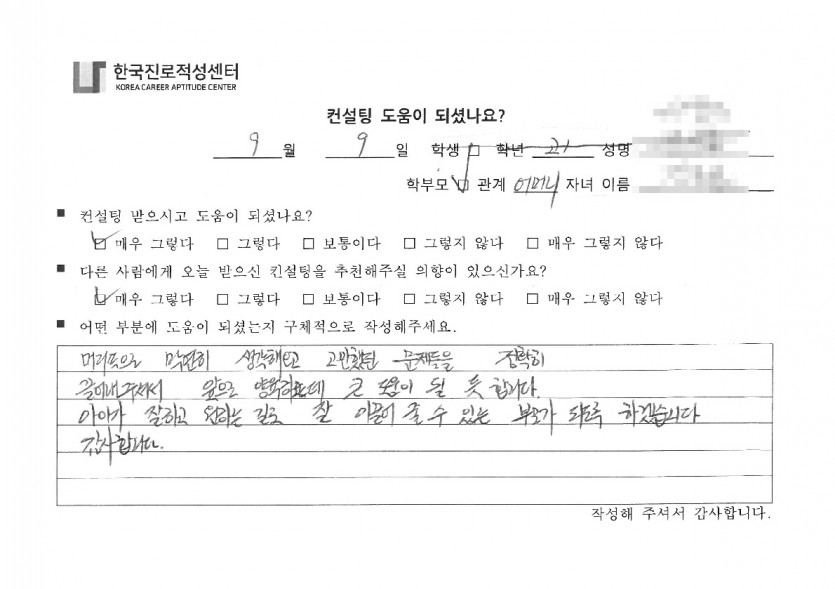 한국진로적성센터
KOREA CAREER APTITUDE CENTER
컨설팅 도움이 되셨나요?
9 월 9 일 학생 □ 학년 고1 성명
학부모 ☑ 관계 어머니 자녀 이름
■ 컨설팅 받으시고 도움이 되셨나요?
☑ 매우 그렇다 □ 그렇다 □ 보통이다 □ 그렇지 않다 □ 매우 그렇지 않다
■ 다른 사람에게 오늘 받으신 컨설팅을 추천해주실 의향이 있으신가요?
☑ 매우 그렇다 □ 그렇다 □ 보통이다 □ 그렇지 않다 □ 매우 그렇지 않다
■ 어떤 부분에 도움이 되셨는지 구체적으로 작성해주세요.
머릿속으로 막연히 생각해오고 고민했던 문제들을 정확히
끌어내주셔서 앞으로 양육하는데 큰 도움이 될 듯 합니다.
아이가 잘하고 원하는 길로 잘 이끌어 줄 수 있는 부모가 되도록 하겠습니다
감사합니다.
작성해 주셔서 감사합니다.